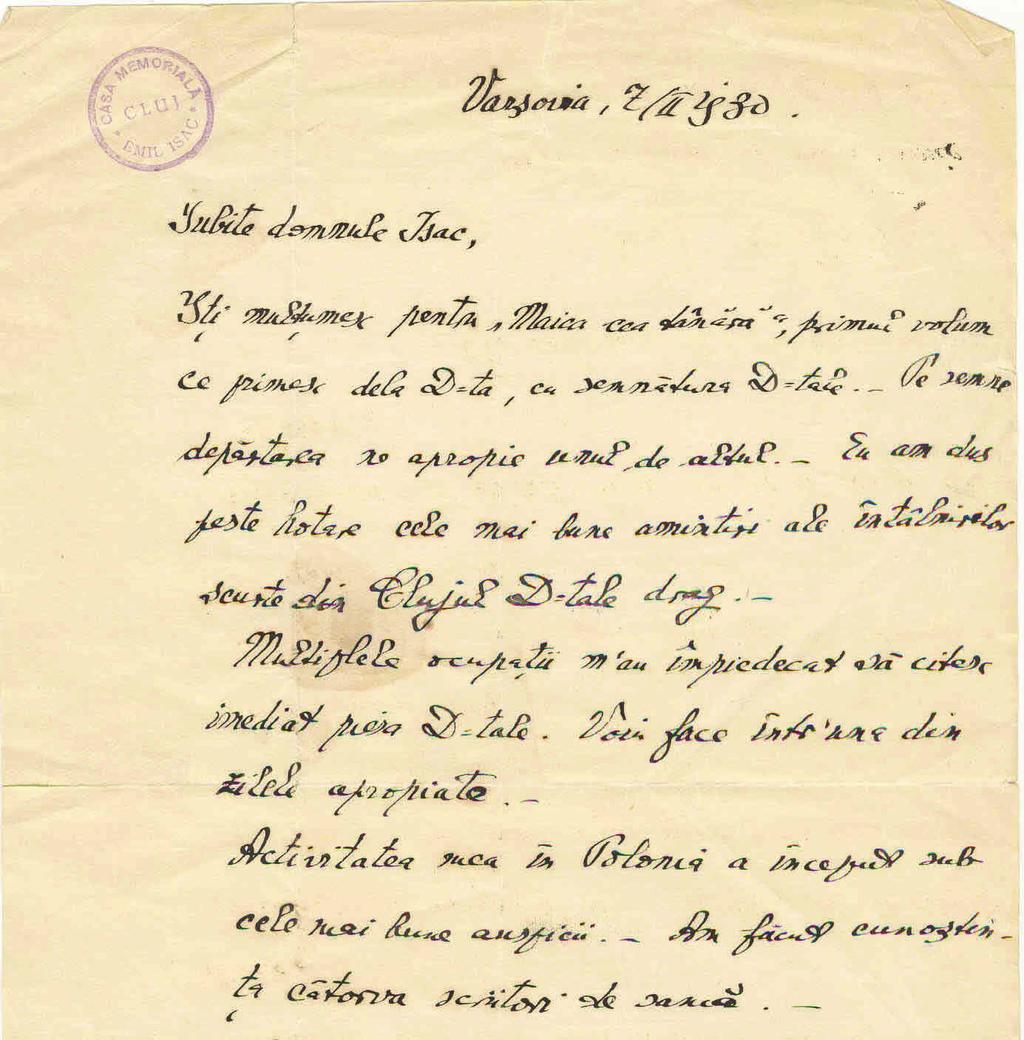 CASA MEMORIALĂ
CLUJ
EMIL ISAC
Varșovia, 7/II 1930.
Iubite domnule Isac,
Iți mulțumesc pentru „Maica cea tânără“, primul volum
ce primesc dela D-ta, cu semnătura D-tale. – Pe semne
depărtarea ne apropie unul de altul. – Eu am dus
peste hotare cele mai bune amintiri ale întâlnirilor
scurte din Clujul D-tale drag. –
Multiplele ocupații m'au împiedecat să citesc
imediat piesa D-tale. Voiu face într'una din
zilele apropiate. –
Activitatea mea în Polonia a început sub
cele mai bune auspicii. – Am făcut cunoștin-
ța câtorva scriitori de samă. –